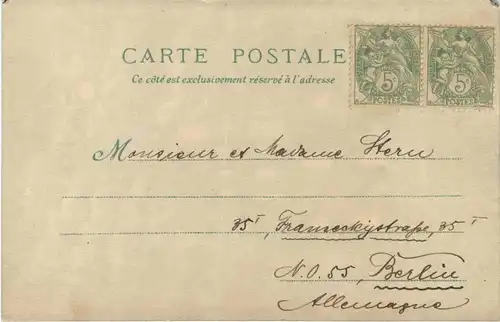 CARTE POSTALE
Ce côté est exclusivement réservé à l'adresse
5c 5c
POSTES POSTES
Monsieur et Madame Stern
35I, Franseckystraße, 35I
N.O. 55, Berlin
Allemagne